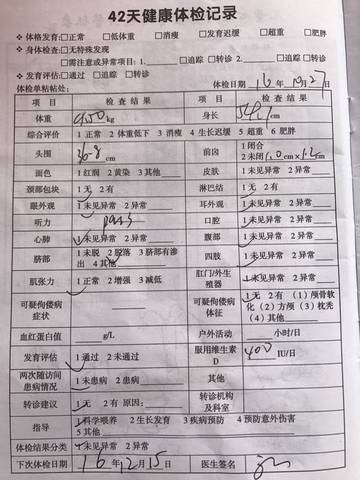 42天健康体检记录
❖ 体格发育:□正常 □低体重 □消瘦 □发育迟缓 □超重 □肥胖
❖ 身体检查:□无特殊发现
□需注意或异常项目: 1. □追踪 □转诊 2. □追踪 □转诊
❖ 发育评估:□通过 □追踪 □转诊
体检单粘帖处: 体检日期 16 年 10月27日
项 目 检 查 结 果 项 目 检 查 结 果
体重 kg 身长 cm
综合评价 1 正常 2 体重低下 3 消瘦 4 生长迟缓 5 超重 6 肥胖
头围 cm 前囟 1 闭合
2 未闭 1.0 cm×1.2cm
面色 1 红润 2 黄染 3 其他 皮肤 1 未见异常 2 异常
颈部包块 1 无 2 有 淋巴结 1 无 2 有
眼外观 1 未见异常 2 异常 耳外观 1 未见异常 2 异常
听力 pass 口腔 1 未见异常 2 异常
心肺 1 未见异常 2 异常 腹部 1 未见异常 2 异常
脐部 1 未脱 2 脱落 3 脐部有渗出 4 其他 四肢 1 未见异常 2 异常
肌张力 1 正常 2 增强 3 减低 肛门/外生殖器 1 未见异常 2 异常
可疑佝偻病症状 可疑佝偻病体征 1 无 2 有 (1) 颅骨软化 (2) 方颅 (3) 枕秃 (4) 其他
血红蛋白值 g/L 户外活动 小时/日
发育评估 1 通过 2 未通过 服用维生素D 400 IU/日
两次随访间患病情况 1 未患病 2 患病 其他
转诊建议 1 无 2 有 原因: 转诊机构及科室
指导 1 科学喂养 2 生长发育 3 疾病预防 4 预防意外伤害
5 其他
体检结果分类 1 未见异常 2 异常
下次体检日期 16 年 12 月 15 日 医生签名